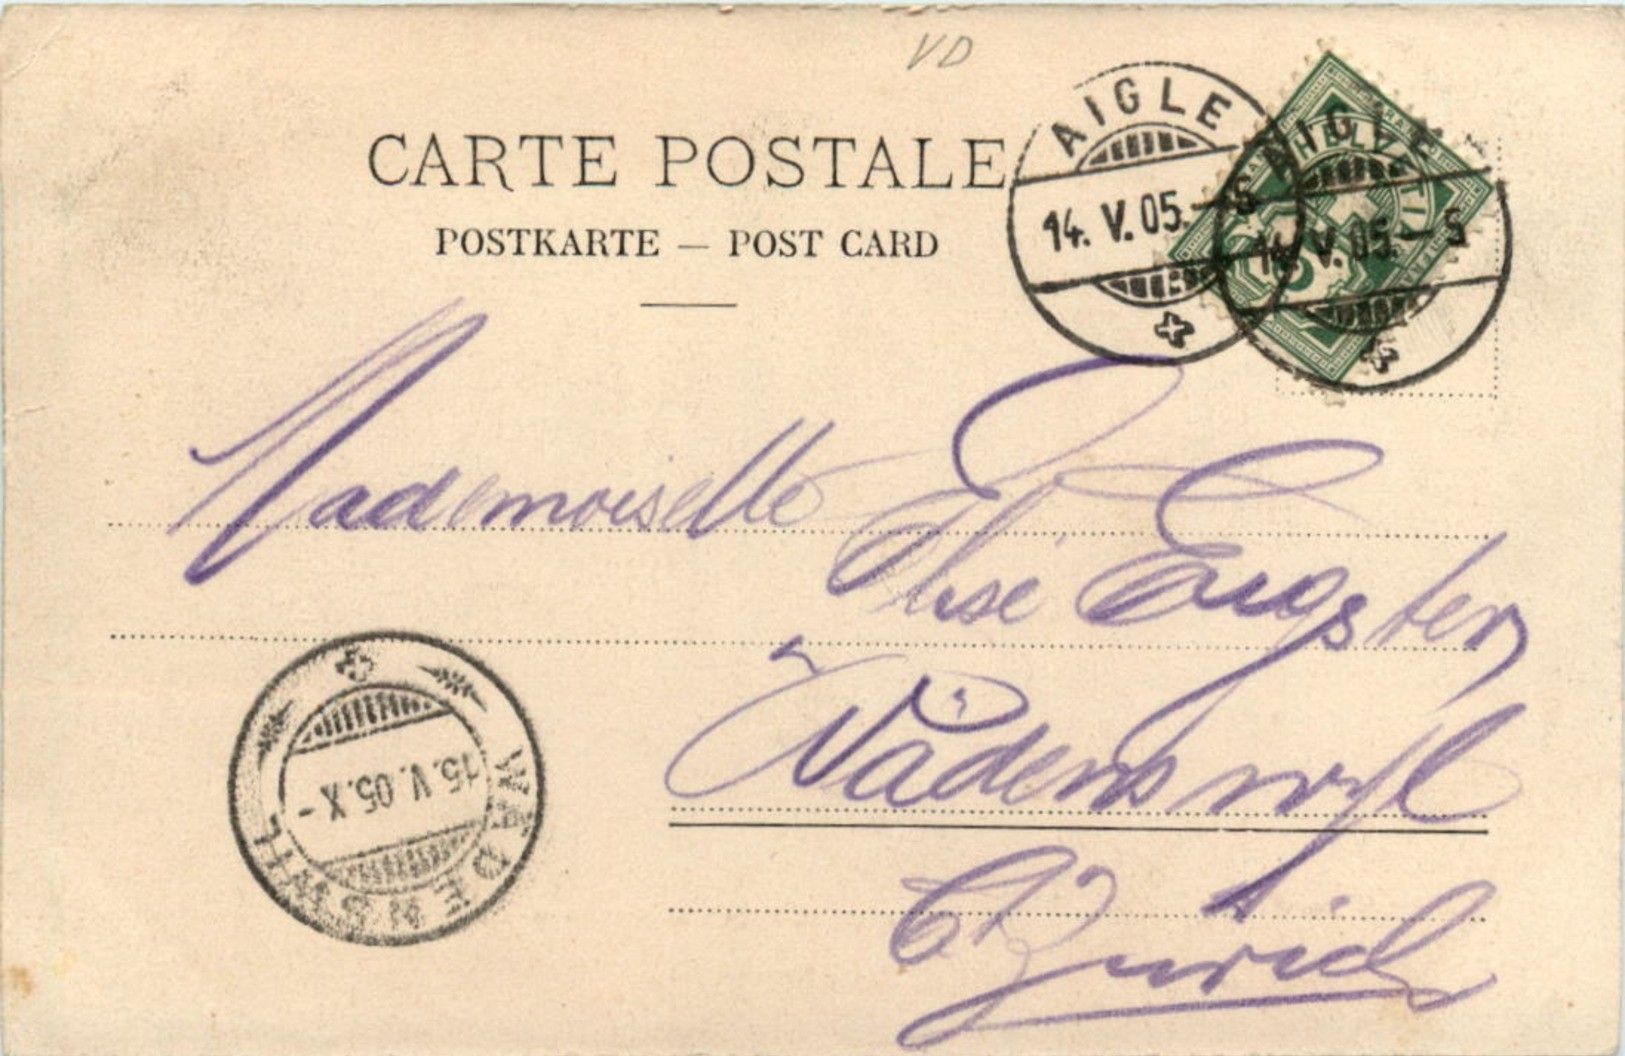 VD
CARTE POSTALE
POSTKARTE — POST CARD
AIGLE
14. V. 05. - S
AIGLE
14. V. 05. - S
HELVETIA
FRANCO
5
Mademoiselle
Elise Eugster
Wädensweyl
Ct Zürich
WÆDENSWIL
15. V. 05. X -